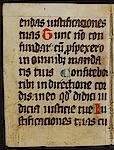 endas iustificationes
tuas Tunc nō con
fundar cū pspexero
in omnibȝ manda
tis tuis Confitebor
tibi in directione cor
dis: in eo qd didici iu
dicia iusticie tue In
stificationes tuas cu